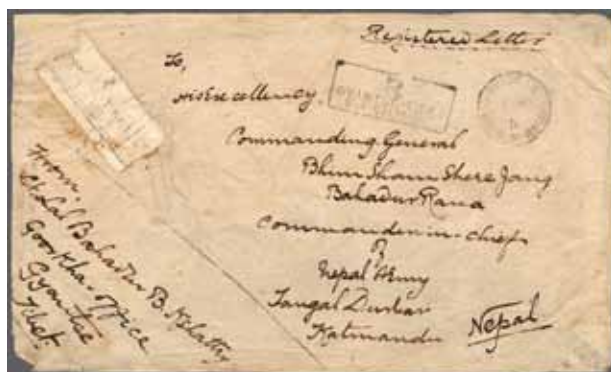 Registered Letter
To,
His Excellency,
Commanding General
Bhim Sham Shere Jang
Bahadur Rana
Commander in-Chief
Nepal Army
Tangal Durbar
Katmandu
Nepal
From:
Lt Lal Bahadur B. Kshattry
Goorkha office
Gyantse
Tibet